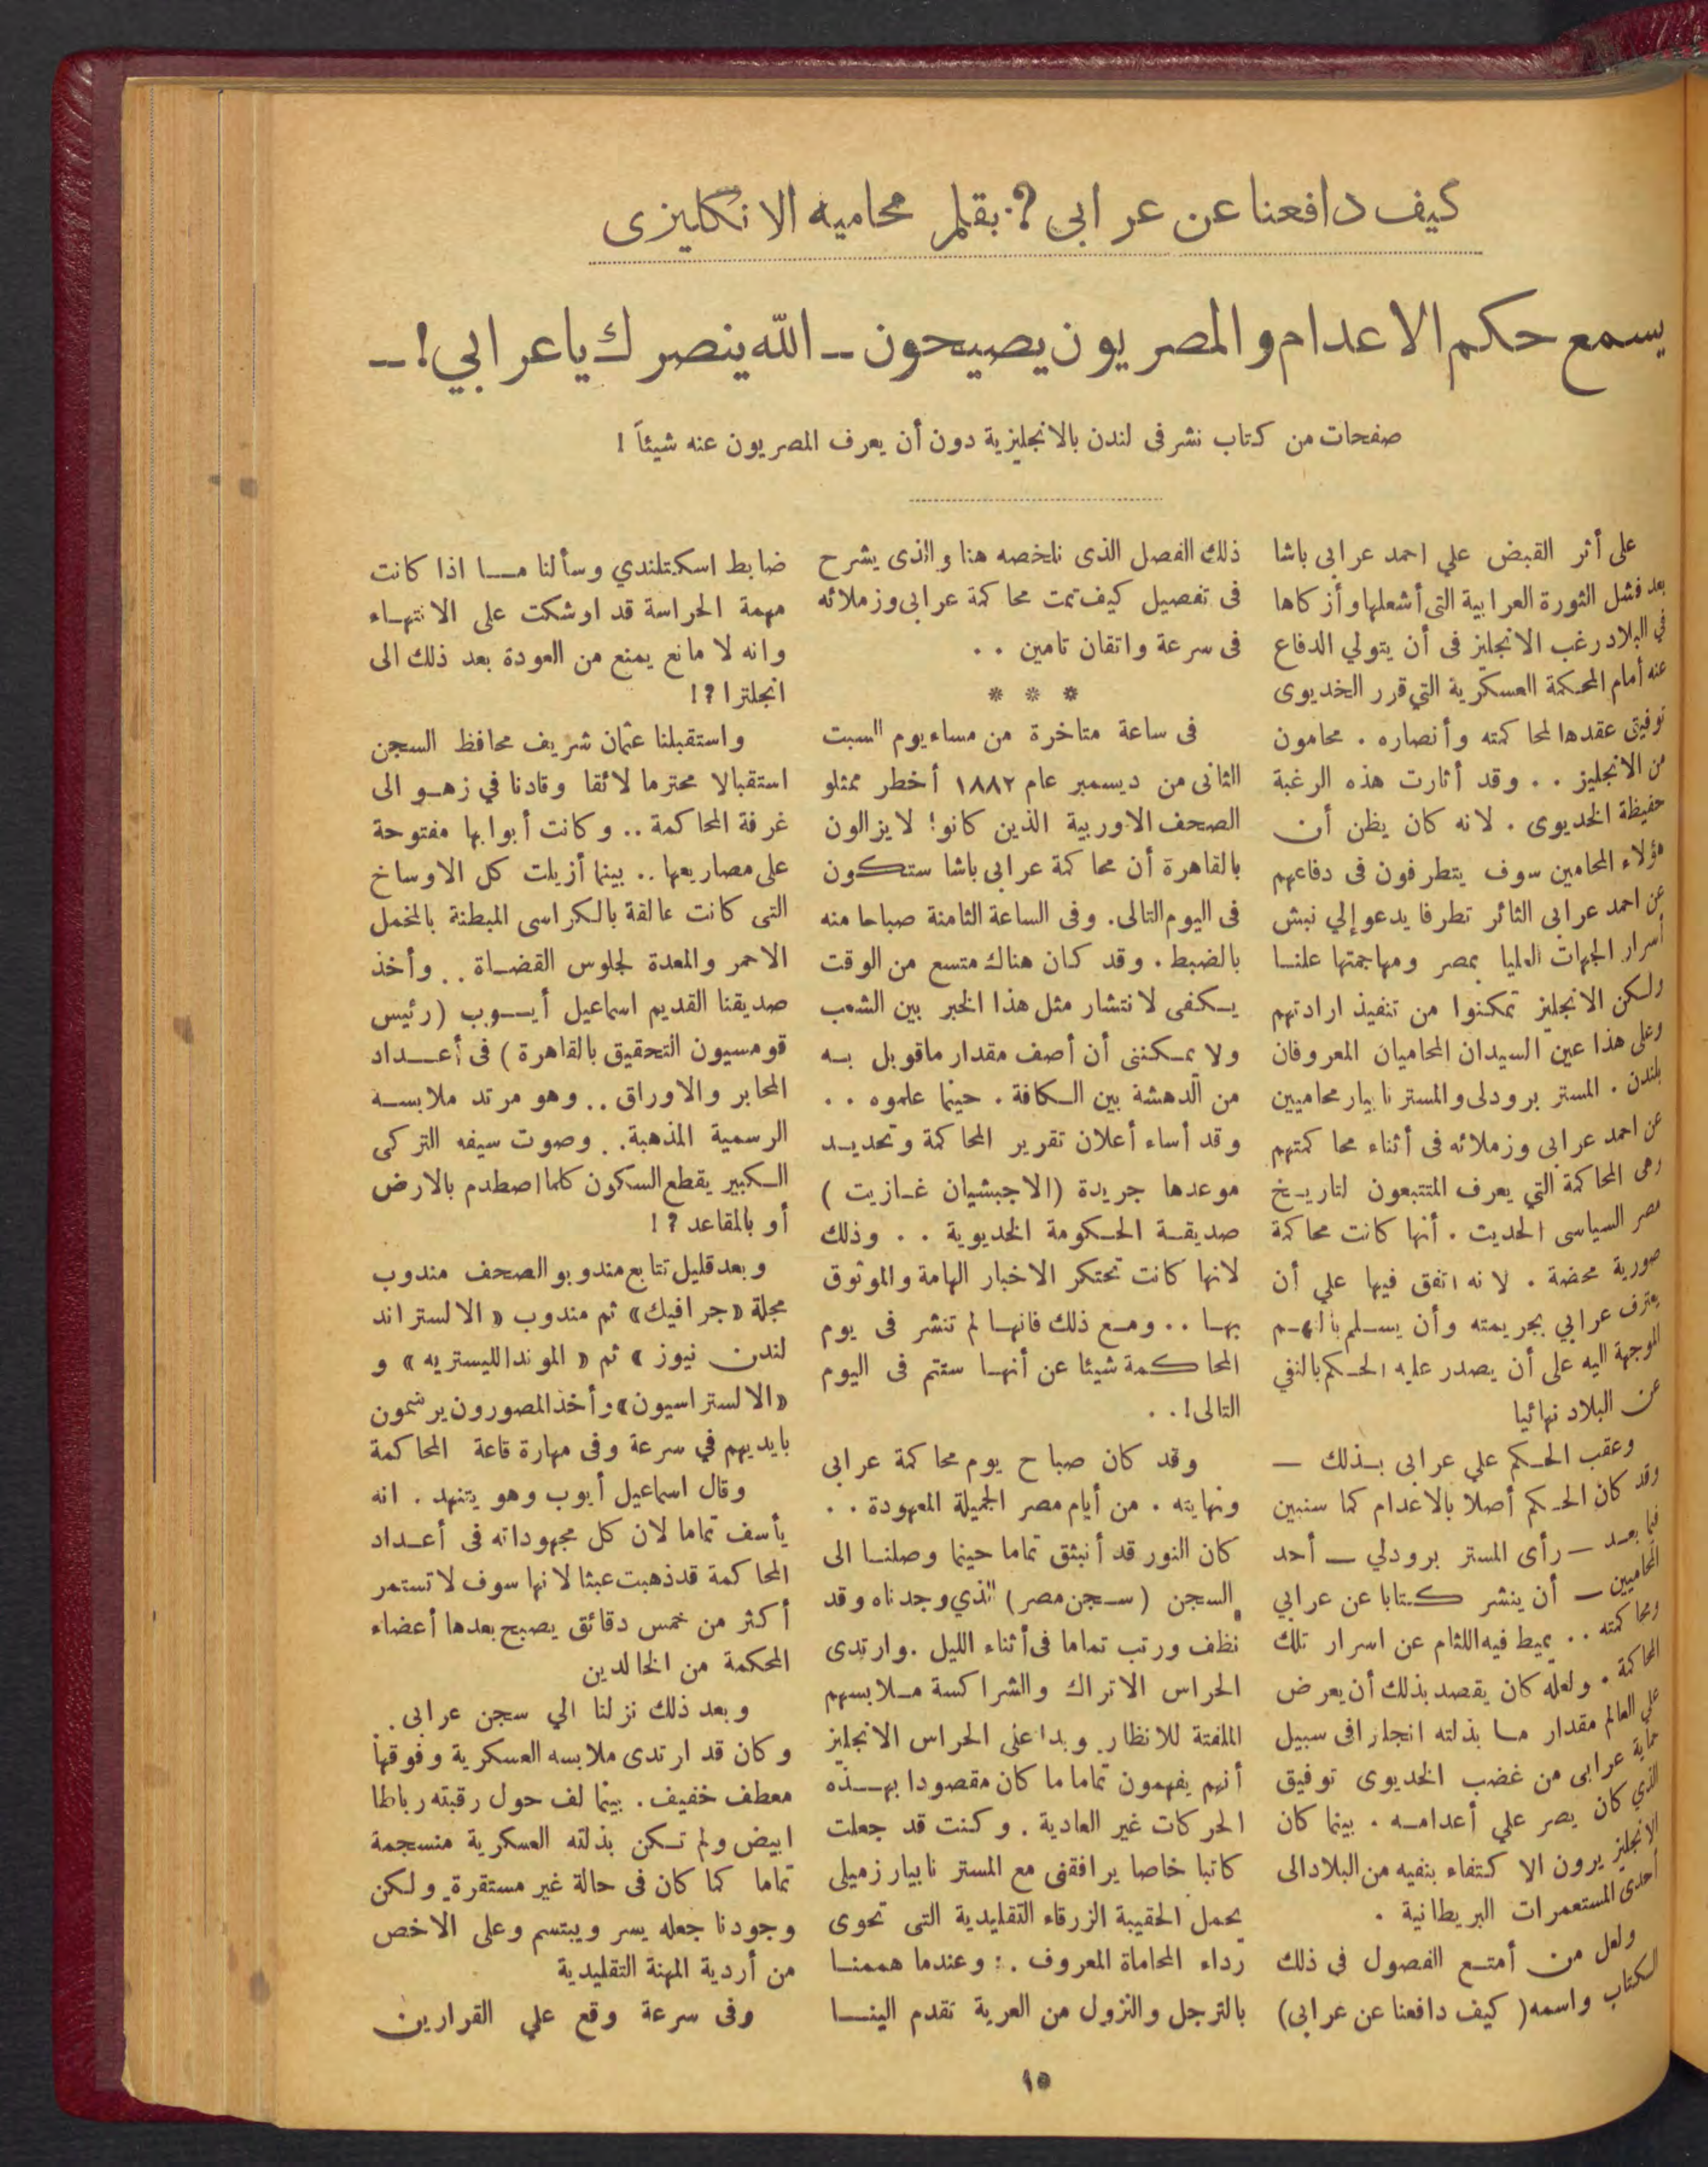 كيف دافعنا عن عرابى ؟ بقلم محاميه الانكليزى
يسمع حكم الاعدام والمصريون يصيحون ـ الله ينصرك يا عرابي ! ـ
صفحات من كتاب نشر فى لندن بالانجليزية دون أن يعرف المصريون عنه شيئاً !
على أثر القبض علي احمد عرابى باشا
بعد فشل الثورة العرابية التى أشعلها وأزكاها
في البلاد رغب الانجليز فى أن يتولي الدفاع
عنه أمام المحكمة العسكرية التي قرر الخديوى
توفيق عقدها لمحاكمته وأنصاره . محامون
من الانجليز . . وقد أثارت هذه الرغبة
حفيظة الخديوى . لانه كان يظن أن
هؤلاء المحامين سوف يتطرفون فى دفاعهم
عن احمد عرابى الثائر تطرفا يدعو إلي نبش
أسرار الجهات العليا بمصر ومهاجمتها علنا
ولكن الانجليز تمكنوا من تنفيذ ارادتهم
وعلى هذا عين السيدان المحاميان المعروفان
بلندن . المستر برودلى والمستر نابيار محاميين
عن احمد عرابى وزملائه فى أثناء محاكمتهم
وهى المحاكمة التي يعرف المتتبعون لتاريخ
مصر السياسى الحديث . أنها كانت محاكمة
صورية محضة . لانه اتفق فيها علي أن
يعترف عرابي بجريمته وأن يسلم بالتهم
الموجهة اليه على أن يصدر عليه الحكم بالنفي
عن البلاد نهائيا
وعقب الحكم علي عرابى بذلك —
وقد كان الحكم أصلا بالاعدام كما سنبين
فيما بعد — رأى المستر برودلي — أحد
المحاميين — أن ينشر كتابا عن عرابي
ومحاكمته . . يميط فيه اللثام عن اسرار تلك
المحاكمة . ولعله كان يقصد بذلك أن يعرض
علي العالم مقدار ما بذلته انجلترا فى سبيل
حماية عرابى من غضب الخديوى توفيق
الذي كان يصر علي أعدامه . بينما كان
الانجليز يرون الاكتفاء بنفيه من البلاد الى
احدى المستعمرات البريطانية .
ولعل من أمتع الفصول فى ذلك
الكتاب واسمه ( كيف دافعنا عن عرابى )
ذلك الفصل الذى نلخصه هنا والذى يشرح
فى تفصيل كيف تمت محاكمة عرابى وزملائه
فى سرعة واتقان تامين . .
* * *
فى ساعة متاخرة من مساء يوم السبت
الثانى من ديسمبر عام ١٨٨٢ أخطر ممثلو
الصحف الاوربية الذين كانوا لا يزالون
بالقاهرة أن محاكمة عرابى باشا ستكون
فى اليوم التالى . وفى الساعة الثامنة صباحا منه
بالضبط . وقد كان هناك متسع من الوقت
يكفى لانتشار مثل هذا الخبر بين الشعب
ولا يمكننى أن أصف مقدار ماقوبل به
من الدهشة بين الكافة . حينما علموه . .
وقد أساء أعلان تقرير المحاكمة وتحديد
موعدها جريدة (الاجبشيان غازيت )
صديقة الحكومة الخديوية . . وذلك
لانها كانت تحتكر الاخبار الهامة والموثوق
بها . . ومع ذلك فانها لم تنشر فى يوم
المحاكمة شيئا عن أنها ستتم فى اليوم
التالى ! . .
وقد كان صباح يوم محاكمة عرابى
ونهايته . من أيام مصر الجميلة المعهودة . .
كان النور قد أنبثق تماما حينما وصلنا الى
السجن (سجن مصر) الذي وجدناه وقد
نظف ورتب تماما فى أثناء الليل . وارتدى
الحراس الاتراك والشراكسة ملابسهم
الملفتة للانظار . وبدا على الحراس الانجليز
أنهم يفهمون تماما ما كان مقصودا بهذه
الحركات غير العادية . وكنت قد جعلت
كاتبا خاصا يرافقنى مع المستر نابيار زميلى
يحمل الحقيبة الزرقاء التقليدية التى تحوى
رداء المحاماة المعروف . : وعندما هممنا
بالترجل والنزول من العربة تقدم الينا
ضابط اسكتلندي وسألنا ما اذا كانت
مهمة الحراسة قد اوشكت على الانتهاء
وانه لا مانع يمنع من العودة بعد ذلك الى
انجلترا ؟ !
واستقبلنا عثمان شريف محافظ السجن
استقبالا محترما لائقا وقادنا في زهو الى
غرفة المحاكمة . . وكانت أبوابها مفتوحة
على مصاريعها . . بينما أزيلت كل الاوساخ
التى كانت عالقة بالكراسى المبطنة بالمخمل
الاحمر والمعدة لجلوس القضاة . . وأخذ
صديقنا القديم اسماعيل أيوب (رئيس
قومسيون التحقيق بالقاهرة ) فى أعداد
المحابر والاوراق . . وهو مرتد ملابسه
الرسمية المذهبة . . وصوت سيفه التركى
الكبير يقطع السكون كلما اصطدم بالارض
أو بالمقاعد ؟ !
وبعد قليل تتابع مندوبو الصحف مندوب
مجلة «جرافيك» ثم مندوب « الالستراند
لندن نيوز » ثم « الموند الليستريه » و
«الالستراسيون» وأخذ المصورون يرسمون
بايديهم في سرعة وفى مهارة قاعة المحاكمة
وقال اسماعيل أيوب وهو يتنهد . انه
يأسف تماما لان كل مجهوداته فى أعداد
المحاكمة قد ذهبت عبثا لانها سوف لا تستمر
أكثر من خمس دقائق يصبح بعدها أعضاء
المحكمة من الخالدين
وبعد ذلك نزلنا الي سجن عرابى . .
وكان قد ارتدى ملابسه العسكرية وفوقها
معطف خفيف . بينما لف حول رقبته رباطا
ابيض ولم تكن بذلته العسكرية منسجمة
تماما كما كان فى حالة غير مستقرة . ولكن
وجودنا جعله يسر ويبتسم وعلى الاخص
من أردية المهنة التقليدية
وفى سرعة وقع علي القرارين
١٥